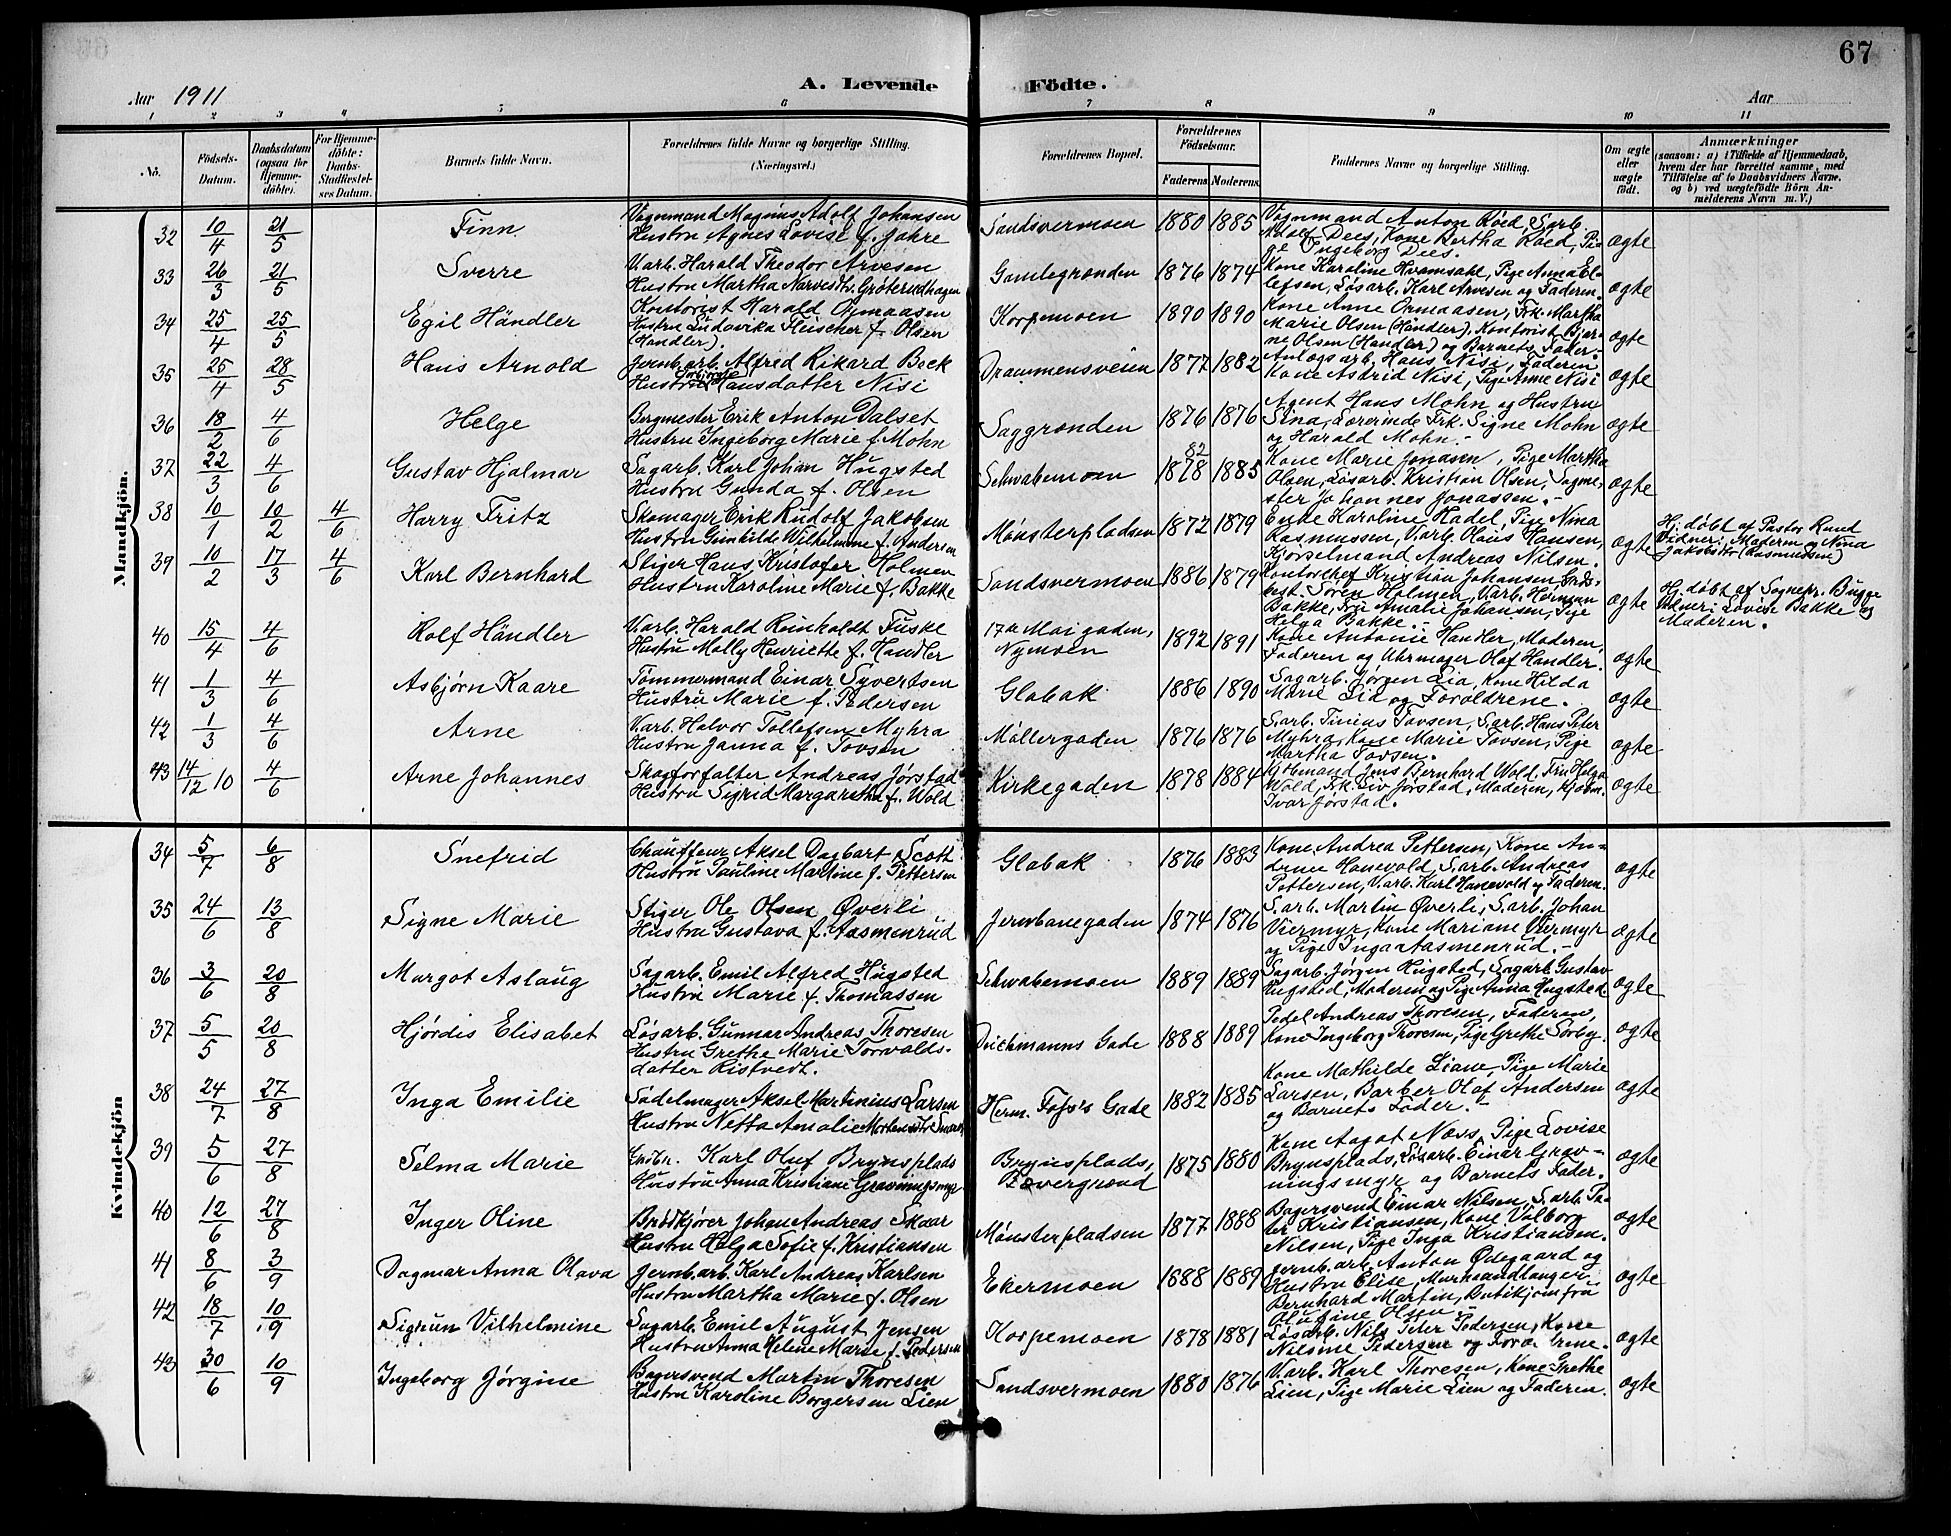 67
A. Levende Födte.
Aar 1911
Aar
1 2 3 4 5 6 7 8 9 10 11
No.
Födsels-Datum.
Daabsdatum (ogsaa for Hjemme-döbte).
For Hjemme-döbte: Daabs-Stadfæstel-ses Datum.
Barnets fulde Navn.
Forældrenes fulde Navne og borgerlige Stilling. (Næringsvei.)
Forældrenes Bopæl.
Forældrenes Födselsaar.
Faderens. Moderens.
Faddernes Navne og borgerlige Stilling.
Om ægte eller uægte födt.
Anmærkninger
(saasom: a) i Tilfælde af Hjemmedaab, hvem der har forrettet samme, med Tilföielse af to Daabsvidners Navne, og b) ved uægtefödte Börn An-melderens Navn m. V.)
Mandkjön.
32 10/4 21/5 Finn
Vognmand Magnus Adolf Johansen
Hustru Agnes Lovise f. Jahre
Sandsvermoen 1880 1885
Vognmand Anton Røed, Sarb.
Adolf Dees, Kone Bertha Røed, Pi-
ge Ingeborg Dees.
ægte
33 26/3 21/5 Sverre
V.arb. Harald Theodor Arvesen
Hustru Martha Narvesdtr. Grøterudhagen
Gamlegrænden 1876 1874
Kone Karoline Hvamsahl, Pige Anna El-
lefsen, Løsarb. Karl Arvesen og Faderen.
ægte
34 25/4 25/5 Egil Händler
Kontorist Harald Ormaasen
Hustru Ludovika Fleischer f. Olsen
(Händler).
Korpemoen 1890 1890
Kone Anne Ormaasen, Frk. Martha
Marie Olsen (Händler), Kontorist Bjar-
ne Olsen (Händler) og Barnets Fader.
ægte
35 25/4 28/5 Hans Arnold
Jernb.arb. Alfred Rikard Beck
Hustru Hansdatter Nisi
Drammensveien 1877 1882
Anlægsarb. Hans Nisi, Faderen
Kone Astrid Nisi, Pige Anne Nisi
ægte
36 18/2 4/6 Helge
Bergmester Erik Anton Dalset
Hustru Ingeborg Marie f. Mohn
Saggrænden 1876 1876
Agent Hans Mohn og Hustru
Sina, Lærerinde Frk. Signe Mohn
og Harald Mohn.
ægte
37 22/3 4/6 Gustav Hjalmar
Sagarb. Karl Johan Hugsted
Hustru Gunda f. Olsen
Schwabemoen 82 1878 1885
Kone Marie Jonasen, Pige Martha
Olsen, Løsarb. Kristian Olsen, Sagme-
ster Johannes Jonassen.
ægte
38 10/1 10/2 4/6 Harry Fritz
Skomager Erik Rudolf Jakobsen
Hustru Gunhilde Wilhelmine f. Andersen
Mønsterpladsen 1872 1879
Enke Karoline Hadel, Pige Nina
Rasmussen, V.arb. Olaus Hansen,
Kjørselmand Andreas Nilsen.
ægte
Hj. døbt af Pastor Rund
Vidner: Moderen og Nina
Jakobsen (Rasmussen)
39 10/2 17/3 4/6 Karl Bernhard
Stiger Hans Kristofer Holmen
Hustru Karoline Marie f. Bakke
Sandsvermoen 1886 1879
Kontorchef Kristian Johansen, Guds-
best. Søren Holmen, V.arb. Herman
Bakke, Fru Amalie Johansen, Pige
Helga Bakke.
ægte
Hj. døbt af Sognepr. Bugge
Vidner: Lovise Bakke og
Moderen.
40 15/4 4/6 Rolf Händler
V.arb. Harald Reinholdt Fuske
Hustru Molly Henriette f. Händler
17de Mai gaden,
Nymoen 1892 1891
Kone Antonie Händler, Moderen,
Faderen og Uhrmager Olaf Händler.
ægte
41 1/3 4/6 Asbjørn Kaare
Tømmermand Einar Syvertsen
Hustru Marie f. Pedersen
Glabak 1886 1890
Sagarb. Jørgen Lia, Kone Hilda
Marie Lia og Forældrene.
ægte
42 1/3 4/6 Arne
V.arb. Halvor Tollefsen Myhra
Hustru Janna f. Tovsen
Møllergaden 1876 1876
S.arb. Tinius Tovsen, S.arb. Hans Peter
Myhra, Kone Marie Tovsen, Pige
Martha Tovsen.
ægte
43 14/12 10 4/6 Arne Johannes
Skogforfalter Andreas Jørstad
Hustru Sigrid Margaretha f. Wold
Kirkegaden 1878 1884
Kjøbmand Jens Bernhard Wold, Fru Helga
Wold, Frk. Liv Jørstad, Moderen, Kjøbm.
Ivar Jørstad.
ægte
Kvindekjön
34 5/7 6/8 Snefrid
Chauffeur Aksel Dagbart Scott
Hustru Pauline Martine f. Pettersen
Glabak 1876 1883
Kone Andrea Pettersen, Kone An-
Hanevold, S.arb. Andreas
Pettersen, V.arb. Karl Hanevold og Faderen.
ægte
35 24/6 13/8 Signe Marie
Stiger Ole Olsen Øverli
Hustru Gustava f. Aasmenrud
Jernbanegaden 1874 1876
S.arb. Martin Øverli, S.arb. Johan
Viermyr, Kone Mariane Viermyr
og Pige Inga Aasmenrud.
ægte
36 3/6 20/8 Margot Aslaug
Sagarb. Emil Alfred Hugsted
Hustru Marie f. Thomassen
Schwabemoen 1889 1889
Sagarb. Jørgen Hugsted, Sagarb. Gustav
Hugsted, Moderen og Pige Anna Hugsted
ægte
37 5/5 20/8 Hjørdis Elisabet
Løsarb. Gunnar Andreas Thoresen
Hustru Grethe Marie Torvalds-
datter Ristvedt.
Dichmanns Gade 1888 1889
Pedel Andreas Thoresen, Faderen,
Kone Ingeborg Thoresen, Pige Grethe Sørby.
ægte
38 24/7 27/8 Inga Emilie
Sadelmager Aksel Martinius Larsen
Hustru Netta Amalie
Herm. Foss's Gade 1882 1885
Kone Mathilde Liane, Pige Marie
Larsen, Barber Olaf Andersen
og Barnets Fader.
ægte
39 5/6 27/8 Selma Marie
Gaðbr. Karl Oluf Brynsplads
Hustru Anna Kristiane Gravningsmyr
Brynsplads,
1875 1880
Kone Aagot Næss, Pige Lovise
Brynsplads, Løsarb. Einar Grav-
ningsmyr og Barnets Fader.
ægte
40 12/6 27/8 Inger Oline
Brødkjører Johan Andreas Skaar
Hustru Helga Sofie f. Kristiansen
Mønsterpladsen 1877 1888
Bagersvend Einar Nilsen, S.arb. Pe-
ter Kristiansen, Kone Valborg
Nilsen, Pige Inga Kristiansen.
ægte
41 8/6 3/9 Dagmar Anna Olava
Jernb.arb. Karl Andreas Karlsen
Hustru Martha Marie f. Olsen
Ekermoen 1888 1889
Jernb. arb. Anton Ødegaard og
Hustru Elise, Murhaandlanger
Bernhard Martin, Butikjomfru
Olufine Olsen.
ægte
42 18/7 10/9 Sigrun Vilhelmine
Sagarb. Emil August Jensen
Hustru Anna Helene Marie f. Pedersen
Korpemoen 1878 1881
Løsarb. Nils Peter Pedersen, Kone
Nilsine Pedersen og Forældrene.
ægte
43 30/6 10/9 Ingeborg Jørgine
Bagersvend Martin Thoresen
Hustru Karoline Borgersen Lien
Sandsvermoen 1880 1876
V.arb. Karl Thoresen, Kone Grethe
Lien, Pige Marie Lien og Faderen.
ægte